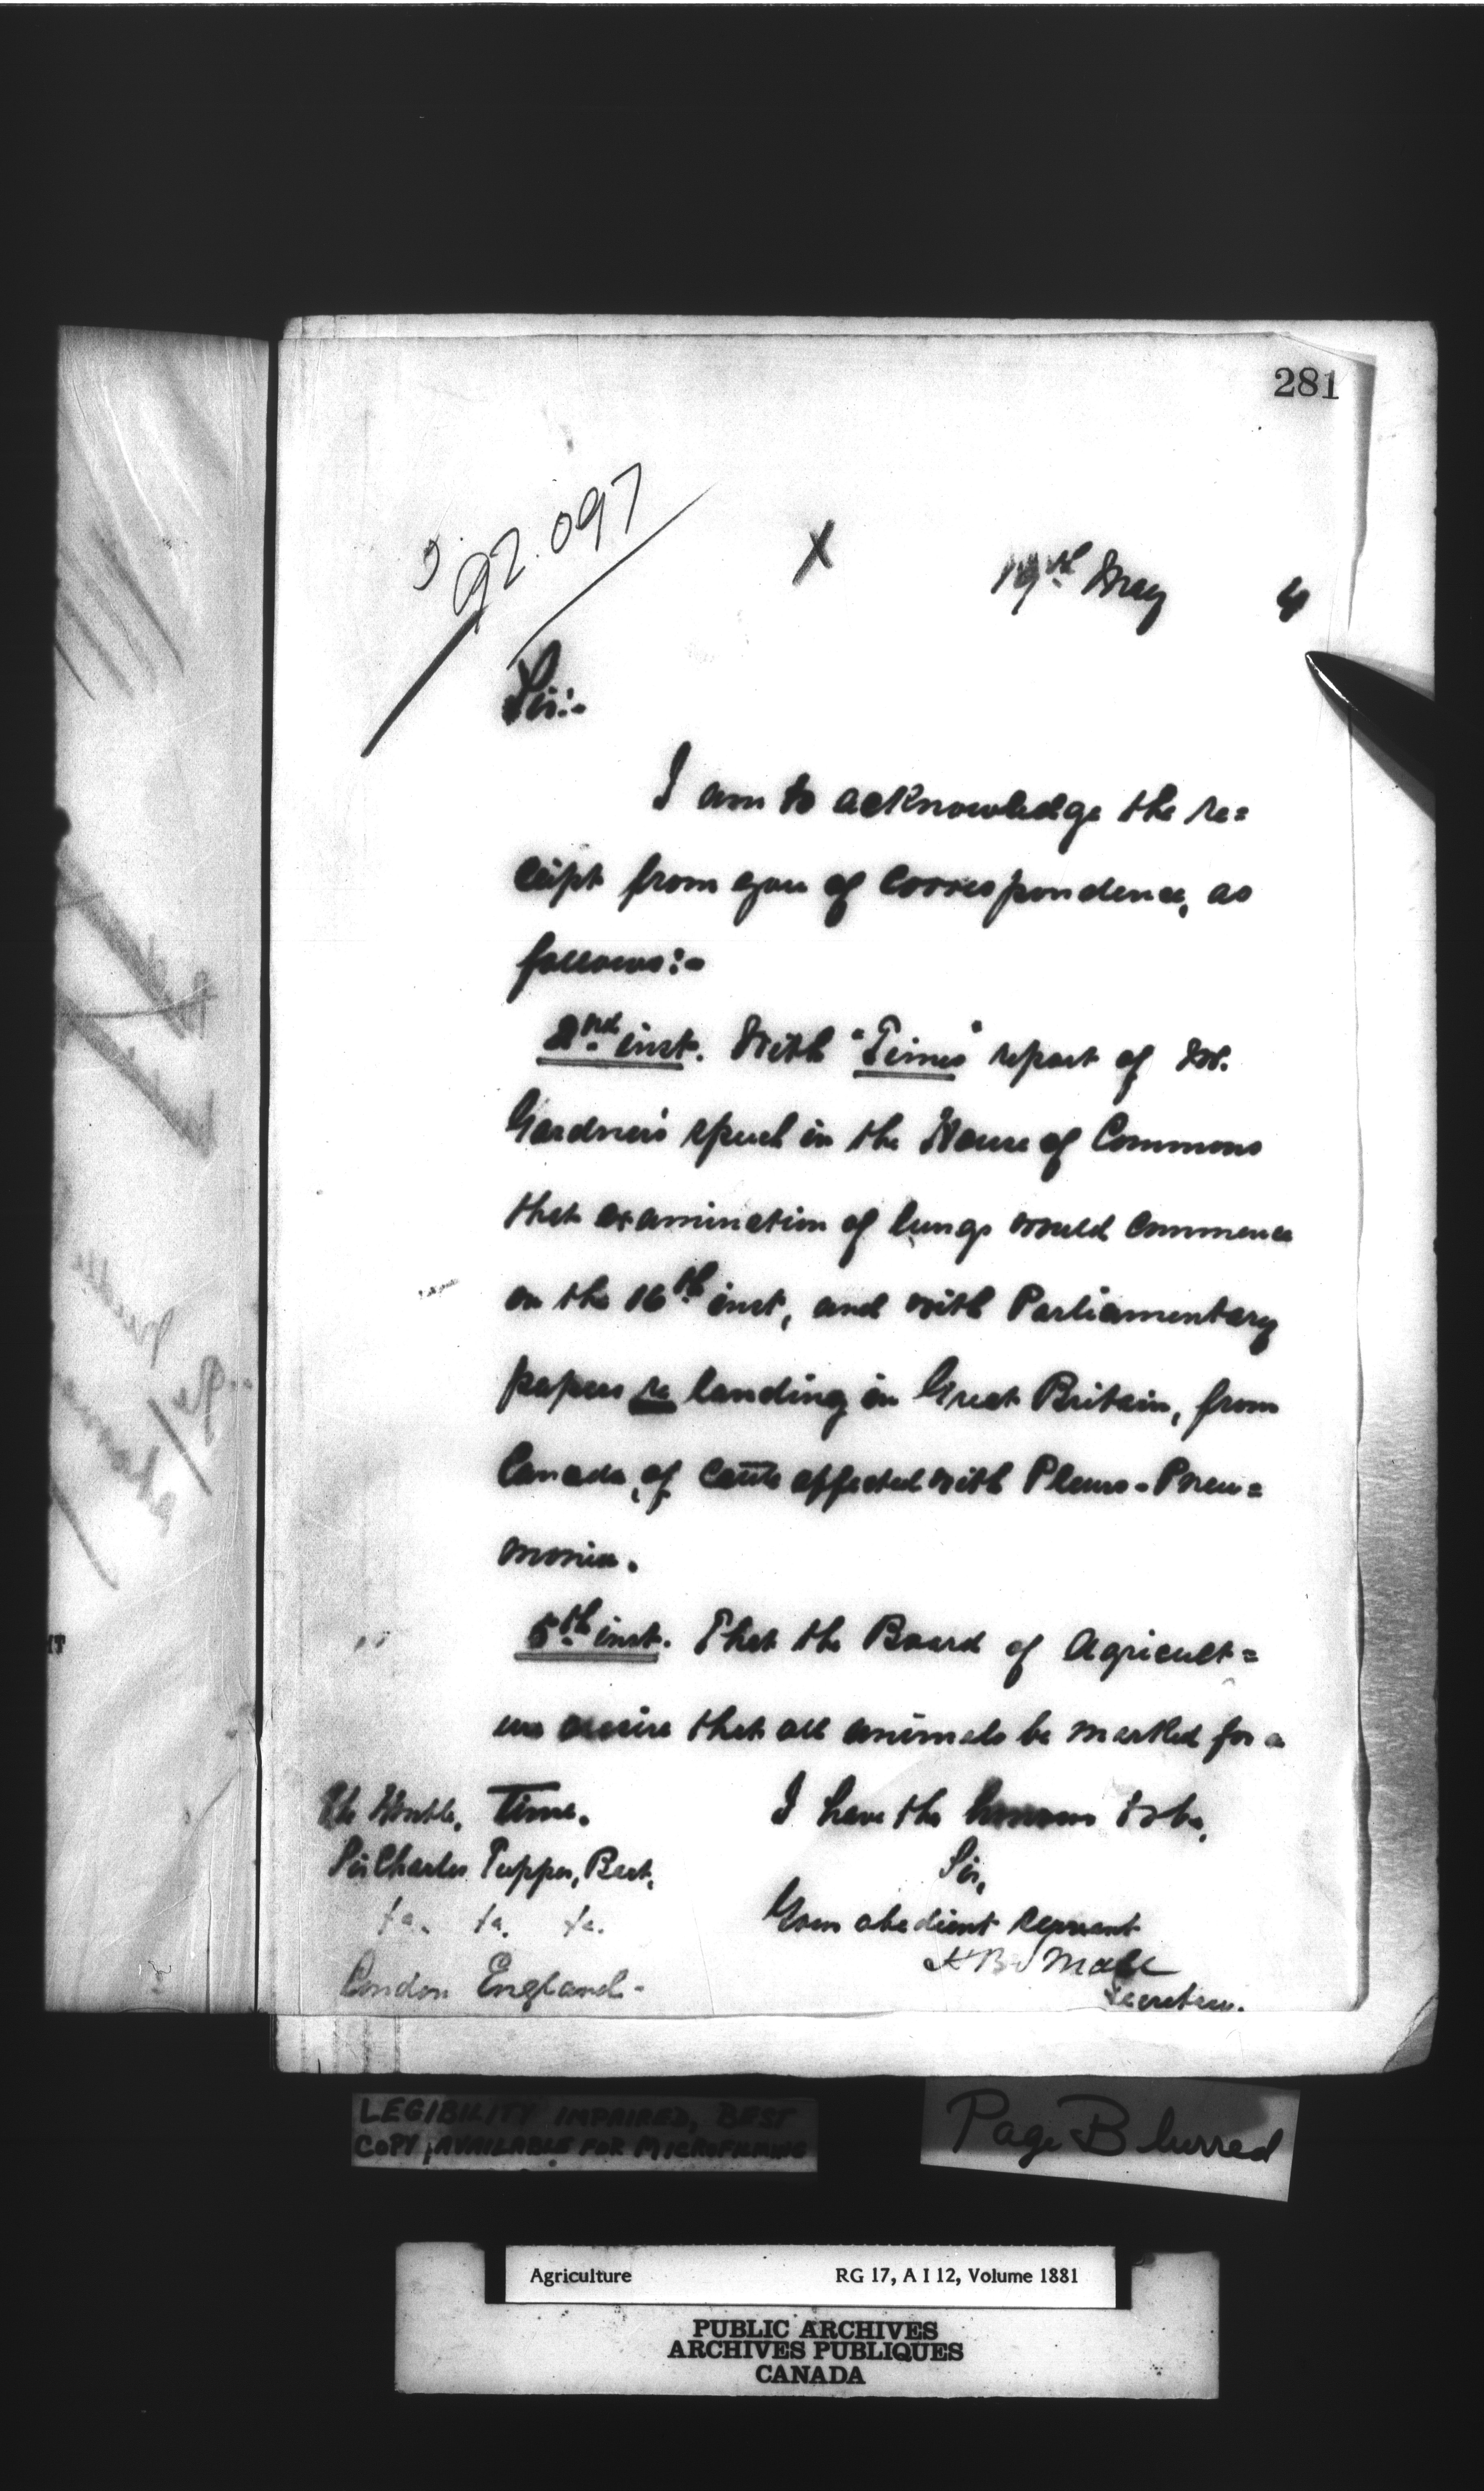 281
92.097
X
19th May 4
Sir:-
I am to acknowledge the re=
ceipt from you of correspondence, as
follows:-
2nd inst. With "Times" report of Mr.
Gardner's speech in the House of Commons
that examination of lungs would commence
on the 16th inst, and with Parliamentary
papers re landing in Great Britain, from
Canada, of cattle affected with Pleuro-Pneu=
monia.
5th inst. That the Board of Agricult=
ure desire that all animals be marked for a
time.
I have the honour to be,
Sir,
Your obedient servant
H B Small
Secretary.
The Honble.
Sir Charles Tupper, Bart,
&c. &c. &c.
London England-
LEGIBILITY IMPAIRED, BEST
COPY AVAILABLE FOR MICROFILMING
Page Blurred
Agriculture RG 17, A I 12, Volume 1881
PUBLIC ARCHIVES
ARCHIVES PUBLIQUES
CANADA